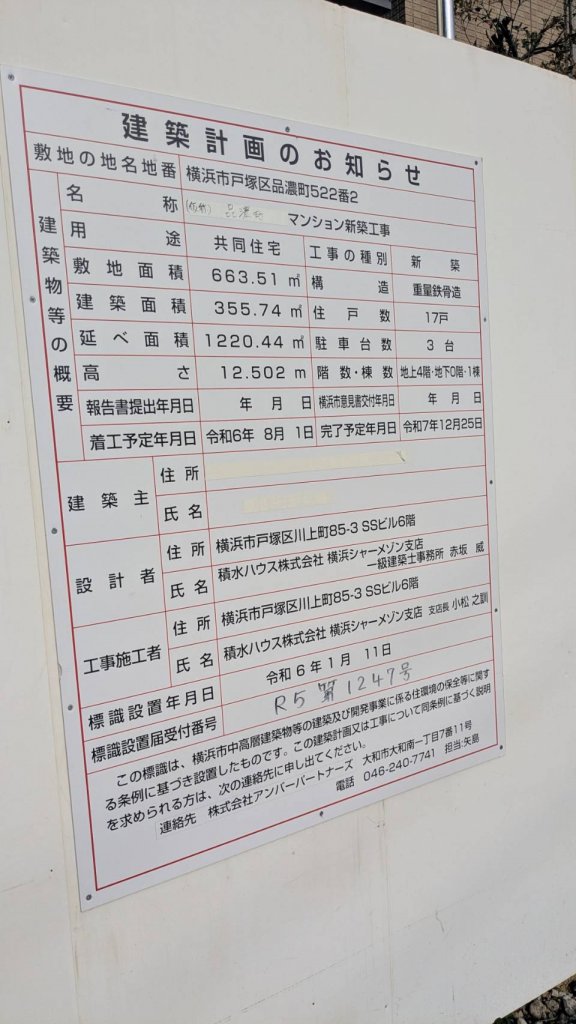 建築計画のお知らせ
敷地の地名地番 横浜市戸塚区品濃町522番2
建築物等の概要
名称 (仮称) 品濃町 マンション新築工事
用途 共同住宅 工事の種別 新築
敷地面積 663.51 ㎡ 構造 重量鉄骨造
建築面積 355.74 ㎡ 住戸数 17戸
延べ面積 1220.44 ㎡ 駐車台数 3 台
高さ 12.502 m 階数・棟数 地上4階・地下0階・1棟
報告書提出年月日 年 月 日 横浜市意見書交付年月日 年 月 日
着工予定年月日 令和6年 8月 1日 完了予定年月日 令和7年12月25日
建築主 住所
氏名
設計者 住所 横浜市戸塚区川上町85-3 SSビル6階
氏名 積水ハウス株式会社 横浜シャーメゾン支店
一級建築士事務所 赤坂 威
工事施工者 住所 横浜市戸塚区川上町85-3 SSビル6階
氏名 積水ハウス株式会社 横浜シャーメゾン支店 支店長 小松 之訓
標識設置年月日 令和 6 年 1 月 11 日
標識設置届受付番号 R5 第 1247号
この標識は、横浜市中高層建築物等の建築及び開発事業に係る住環境の保全等に関す
る条例に基づき設置したものです。この建築計画又は工事について同条例に基づく説明
を求められる方は、次の連絡先に申し出てください。
連絡先 株式会社アンバーパートナーズ 大和市大和南一丁目7番11号
電話 046-240-7741 担当:矢島